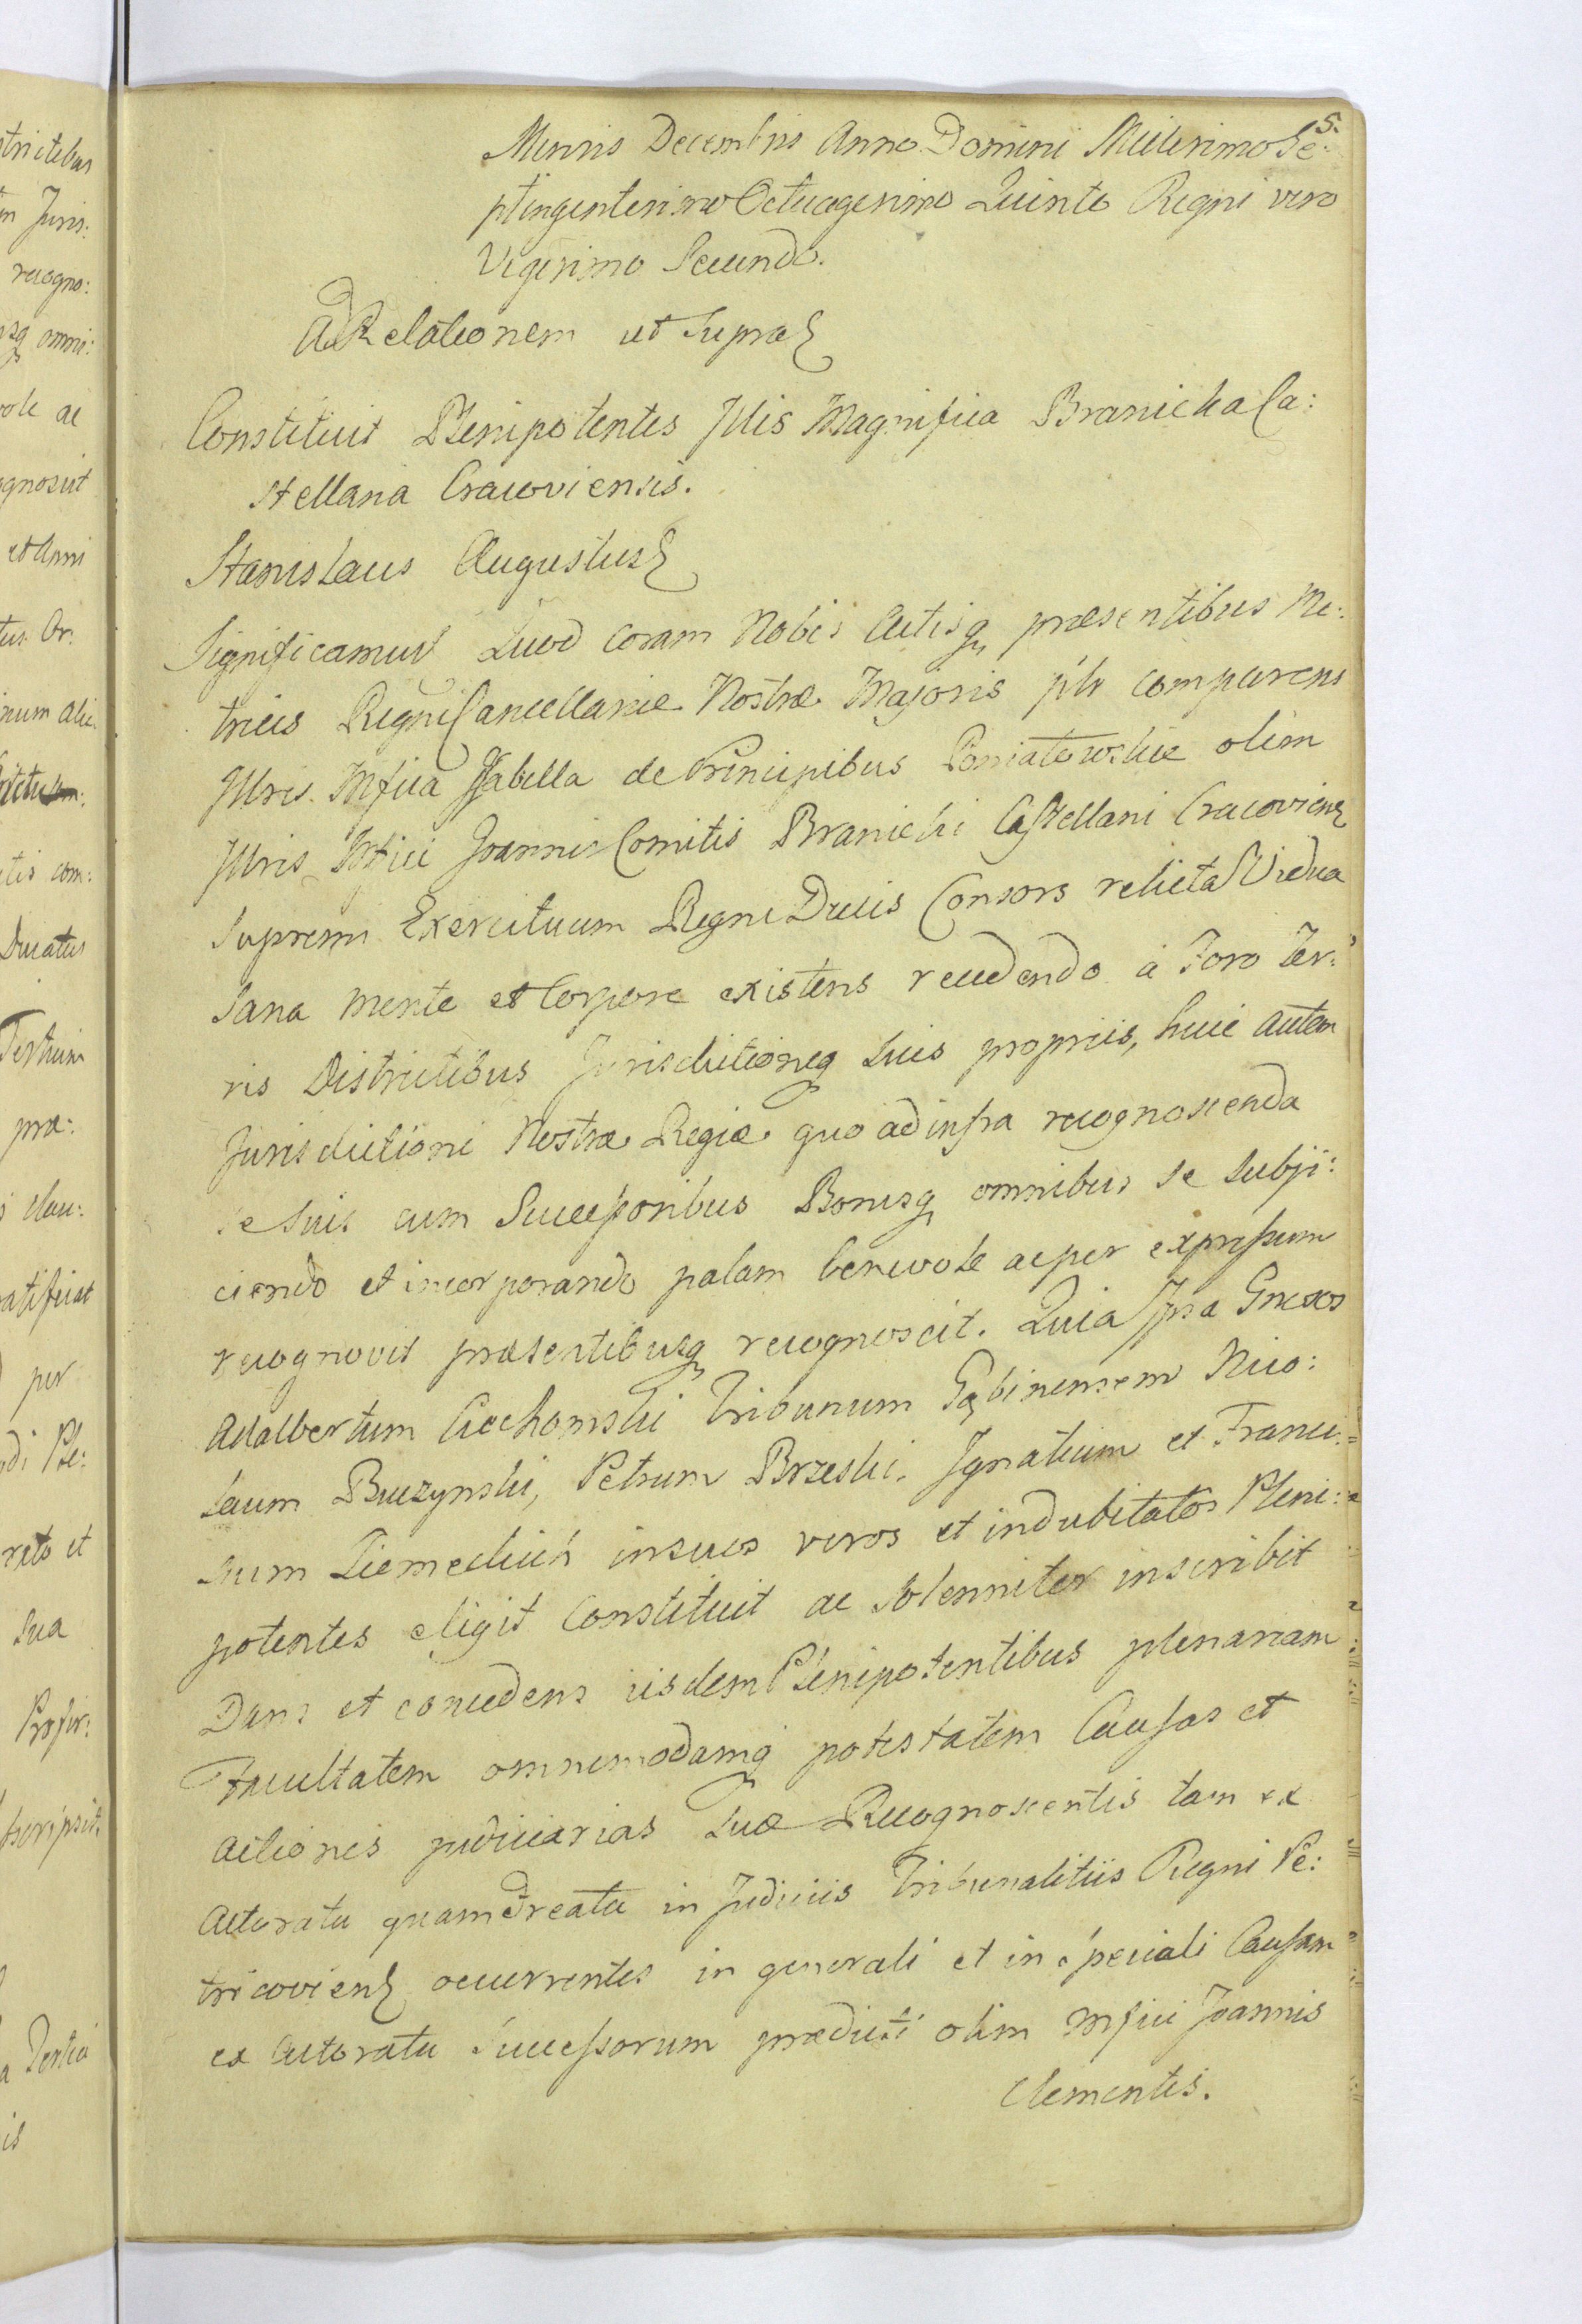 5.
Mensis Decembris Anno Domini Millesimo Se:
ptingentesimo Octuagesimo Quinto Regni vero
Vigesimo Secundo.
Ad Relationem ut supra
Constituit Plenipotentes Illis Magnifica Branicka Ca:
stellana Cracoviensis.
Stanislaus Augustus
Significamus Quod coram Nobis Actisq præsentibus Me:
trices Regni Cancellariæ Nostræ Majoris plr comparens
Illris Mfica Isabella de Principibus Poniatowskie olim
Illris Mfici Joannis Comitis Branicki Castellani Cracovien
Supremi Exercituum Regni Ducis Consors relicta Vidua
Sana mente et Corpore existens recedendo à Foro Ter:
ris Districtibus Jurisdictioneq suis propriis, huic autem
Jurisdictioni Nostræ Regiæ quo ad infra recognoscenda
se suis cum Successoribus Bonisq omnibus se subji:
ciendo et incorporando palam benevole ac per expressum
recognovit præsentibusq recognoscit. Quia Ipsa Gnrosos
Adalbertum Ciechomski Tribunum Gąbinensem Nico:
laum Buczynski, Petrum Brzeski, Ignatium et Franci:
scum Ziemeckich in suos veros et indubitatos Pleni:
potentes eligit Constituit ac solenniter inscribit
Dans et concedens iisdem Plenipotentibus plenariam
Facultatem omnimodamq potestatem Causas et
actiones judiciarias suæ Recognoscentis tam ex
Actoratu quam et reatu in Judiciis Tribunalitiis Regni Pe:
tricovien occurrentes in generali et in speciali Causam
ex Actoratu Successorum prædicti olim Mfici Joannis
Clementis.